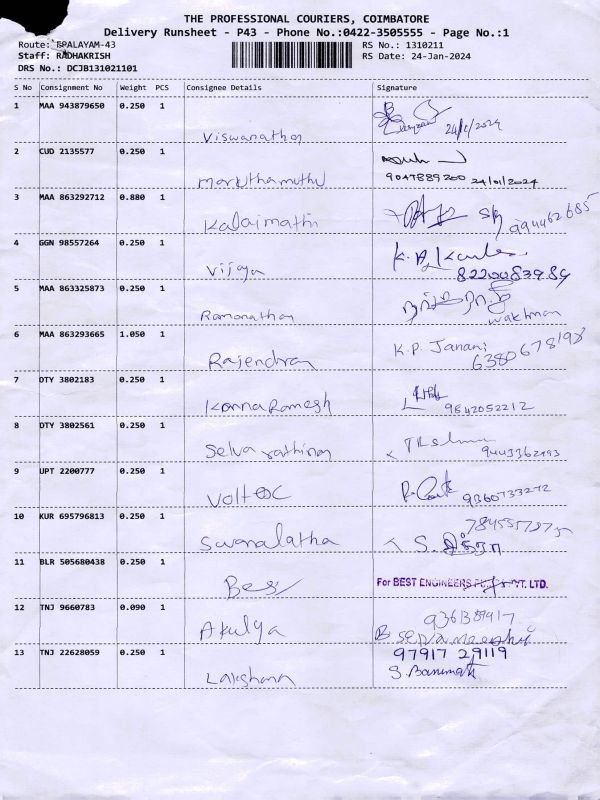 THE PROFESSIONAL COURIERS, COIMBATORE
Delivery Runsheet - P43 - Phone No.:0422-3505555 - Page No.:1
Route: BPALAYAM-43 RS No.: 1310211
Staff: RADHAKRISH RS Date: 24-Jan-2024
DRS No.: DCJB131021101
S No Consignment No Weight PCS Consignee Details Signature
1 MAA 943879650 0.250 1
Viswanathan 24/1/2024
2 CUD 2135577 0.250 1
Maruthamuthu 9047889200 24/01/2024
3 MAA 863292712 0.880 1
Kalaimathi
4 GGN 98557264 0.250 1
Vijaya
5 MAA 863325873 0.250 1
Ramanathan
6 MAA 863293665 1.050 1 K.P. Janani
Rajendran 6380678198
7 DTY 3802183 0.250 1
Kanna Ramesh 9842052212
8 DTY 3802561 0.250 1
Selva rathinam
9 UPT 2200777 0.250 1
Volt 9360733272
10 KUR 695796813 0.250 1
Swarnalatha
11 BLR 505680438 0.250 1
Best For BEST ENGINEERS PVT. LTD.
12 TNJ 9660783 0.090 1
Akulya
13 TNJ 22628059 0.250 1 97917 29119
Lakshana